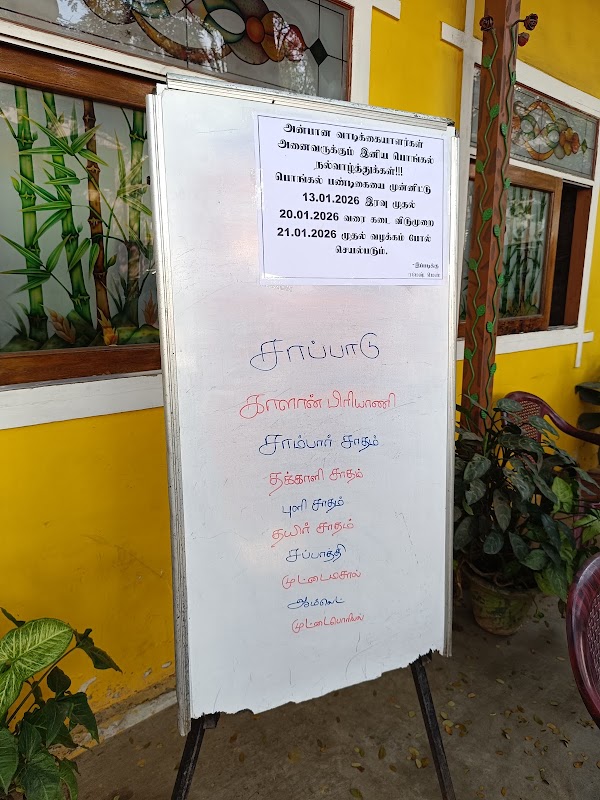 அன்பான வாடிக்கையாளர்கள்
அனைவருக்கும் இனிய பொங்கல்
நல்வாழ்த்துக்கள்!!!
பொங்கல் பண்டிகையை முன்னிட்டு
13.01.2026 இரவு முதல்
20.01.2026 வரை கடை விடுமுறை
21.01.2026 முதல் வழக்கம் போல்
செயல்படும்.
-இப்படிக்கு
சாப்பாடு
காளான் பிரியாணி
சாம்பார் சாதம்
தக்காளி சாதம்
புளி சாதம்
தயிர் சாதம்
சப்பாத்தி
முட்டைமசால்
ஆம்லெட்
முட்டைபொரியல்